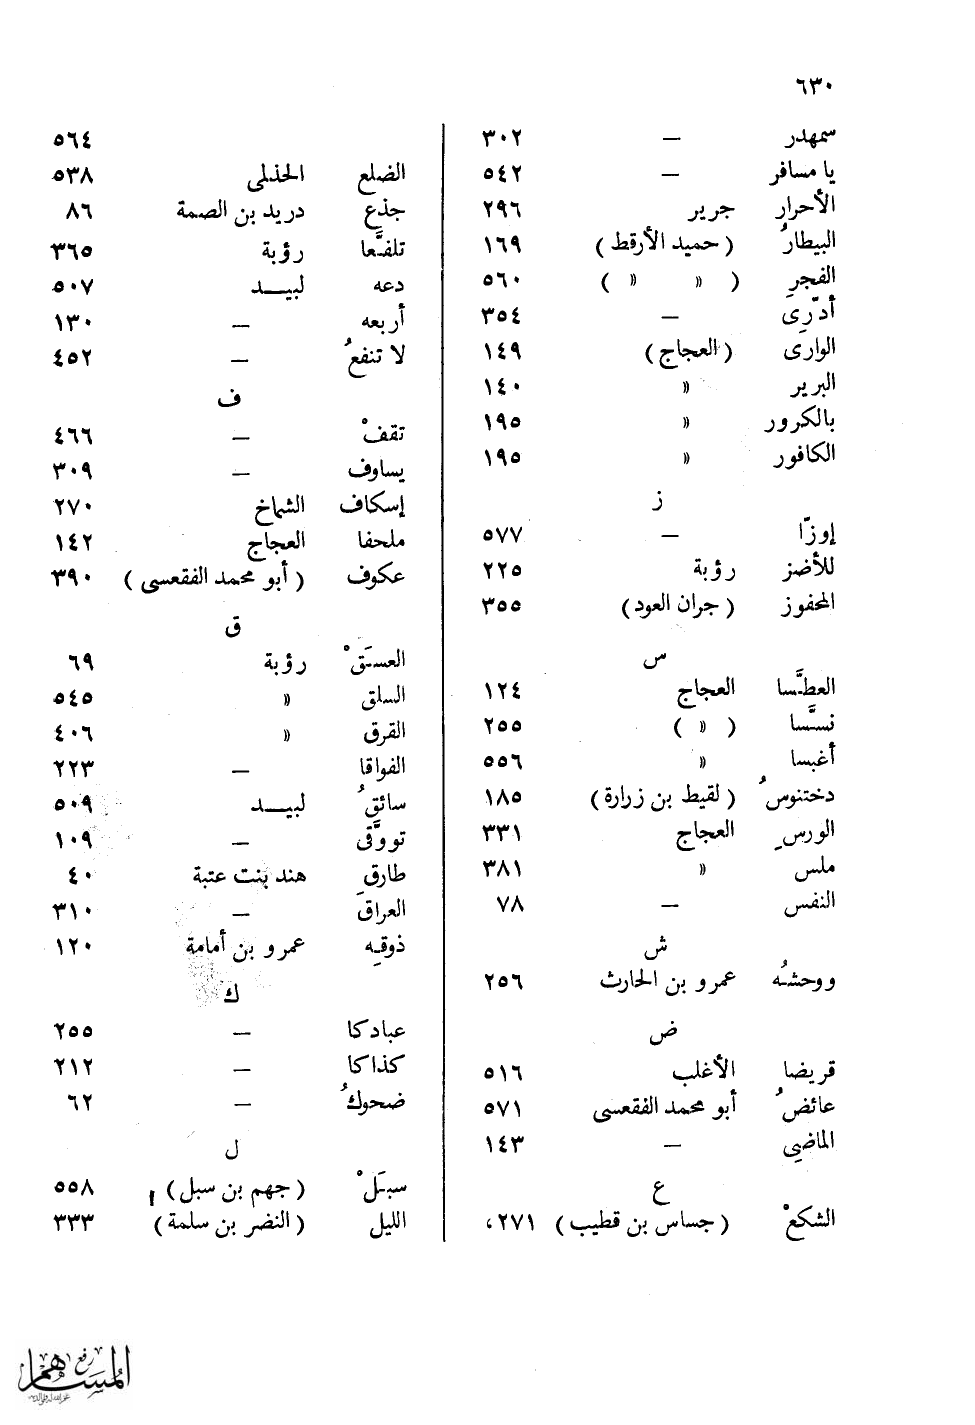 ٦٣٠
سمهدر — ٣٠٢
يا مسافر — ٥٤٢
الأحرار جرير ٢٩٦
البيطارُ ( حميد الأرقط ) ١٦٩
الفجرِ ( » » ) ٥٦٠
أدّرِى — ٣٥٤
الوارى ( العجاج ) ١٤٩
البرير » ١٤٠
بالكرور » ١٩٥
الكافور » ١٩٥
ز
إوزّا — ٥٧٧
للأضز رؤبة ٢٢٥
المحفوز ( جران العود ) ٣٥٥
س
العطَّسا العجاج ١٢٤
نسَّسا ( » ) ٢٥٥
أغبسا » ٥٥٦
دختنوسُ ( لقيط بن زرارة ) ١٨٥
الورسِ العجاج ٣٣١
ملس » ٣٨١
النفس — ٧٨
ش
ووحشُه عمرو بن الحارث ٢٥٦
ض
قريضا الأغلب ٥١٦
عائضُ أبو محمد الفقعسى ٥٧١
الماضِي — ١٤٣
ع
الشكعْ ( جساس بن قطيب ) ٢٧١ ،
٥٦٤
الضلع الحذلمى ٥٣٨
جذع دريد بن الصمة ٨٦
تلفَّعا رؤبة ٣٦٥
دعه لبيـــد ٥٠٧
أربعه — ١٣٠
لا تنفعُ — ٤٥٢
ف
تقفْ — ٤٦٦
يساوف — ٣٠٩
إسكاف الشماخ ٢٧٠
ملحفا العجاج ١٤٢
عكوف ( أبو محمد الفقعسى ) ٣٩٠
ق
العسَقْ رؤبة ٦٩
السلق » ٥٤٥
القرق » ٤٠٦
الفواقا — ٢٢٣
سائقُ لبيـــد ٥٠٩
تووَّقى — ١٠٩
طارقِ هند بنت عتبة ٤٠
العراق — ٣١٠
ذوقِه عمرو بن أمامة ١٢٠
ك
عبادكا — ٢٥٥
كذاكا — ٢١٢
ضحوكُ — ٦٢
ل
سبَلْ ( جهم بن سبل ) ٥٥٨
الليل ( النضر بن سلمة ) ٣٣٣
رفع
المساهم